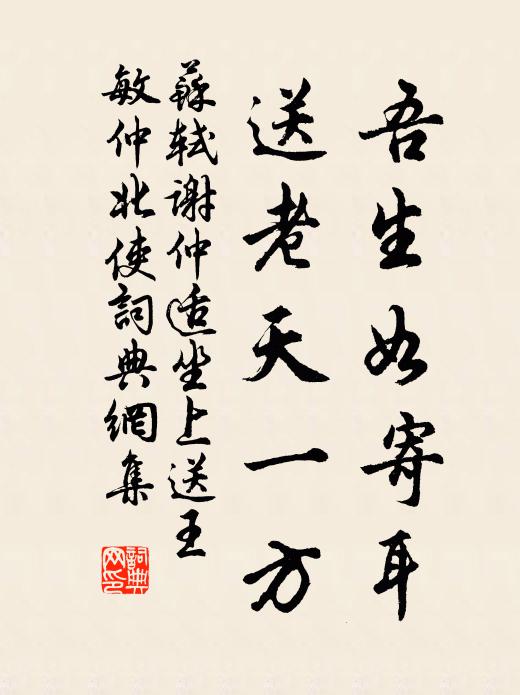 吾生如寄耳
送老天一方
蘇軾謝仲适坐上送王
敏仲北使詞典網集
詞典
网印